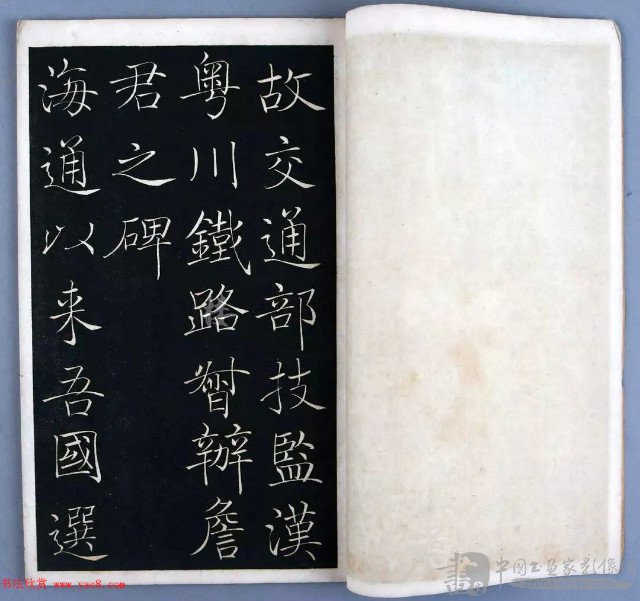 故交通部技監漢
粤川鐵路督辦詹
君之碑
海通以来吾國選
书法欣赏 www.yac8.com
中国书画家影像